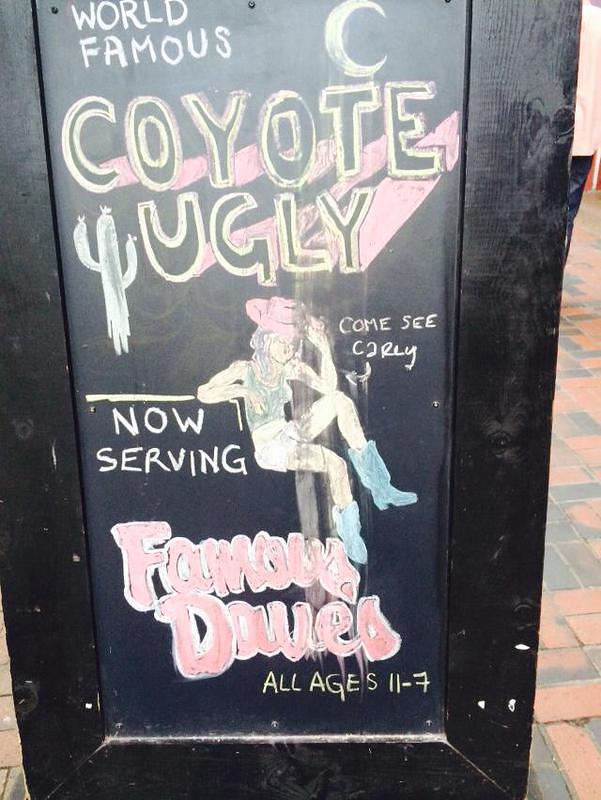 WORLD
FAMOUS
COYOTE
UGLY
COME SEE
CARLy
NOW
SERVING
Famous
Daves
ALL AGES 11-7